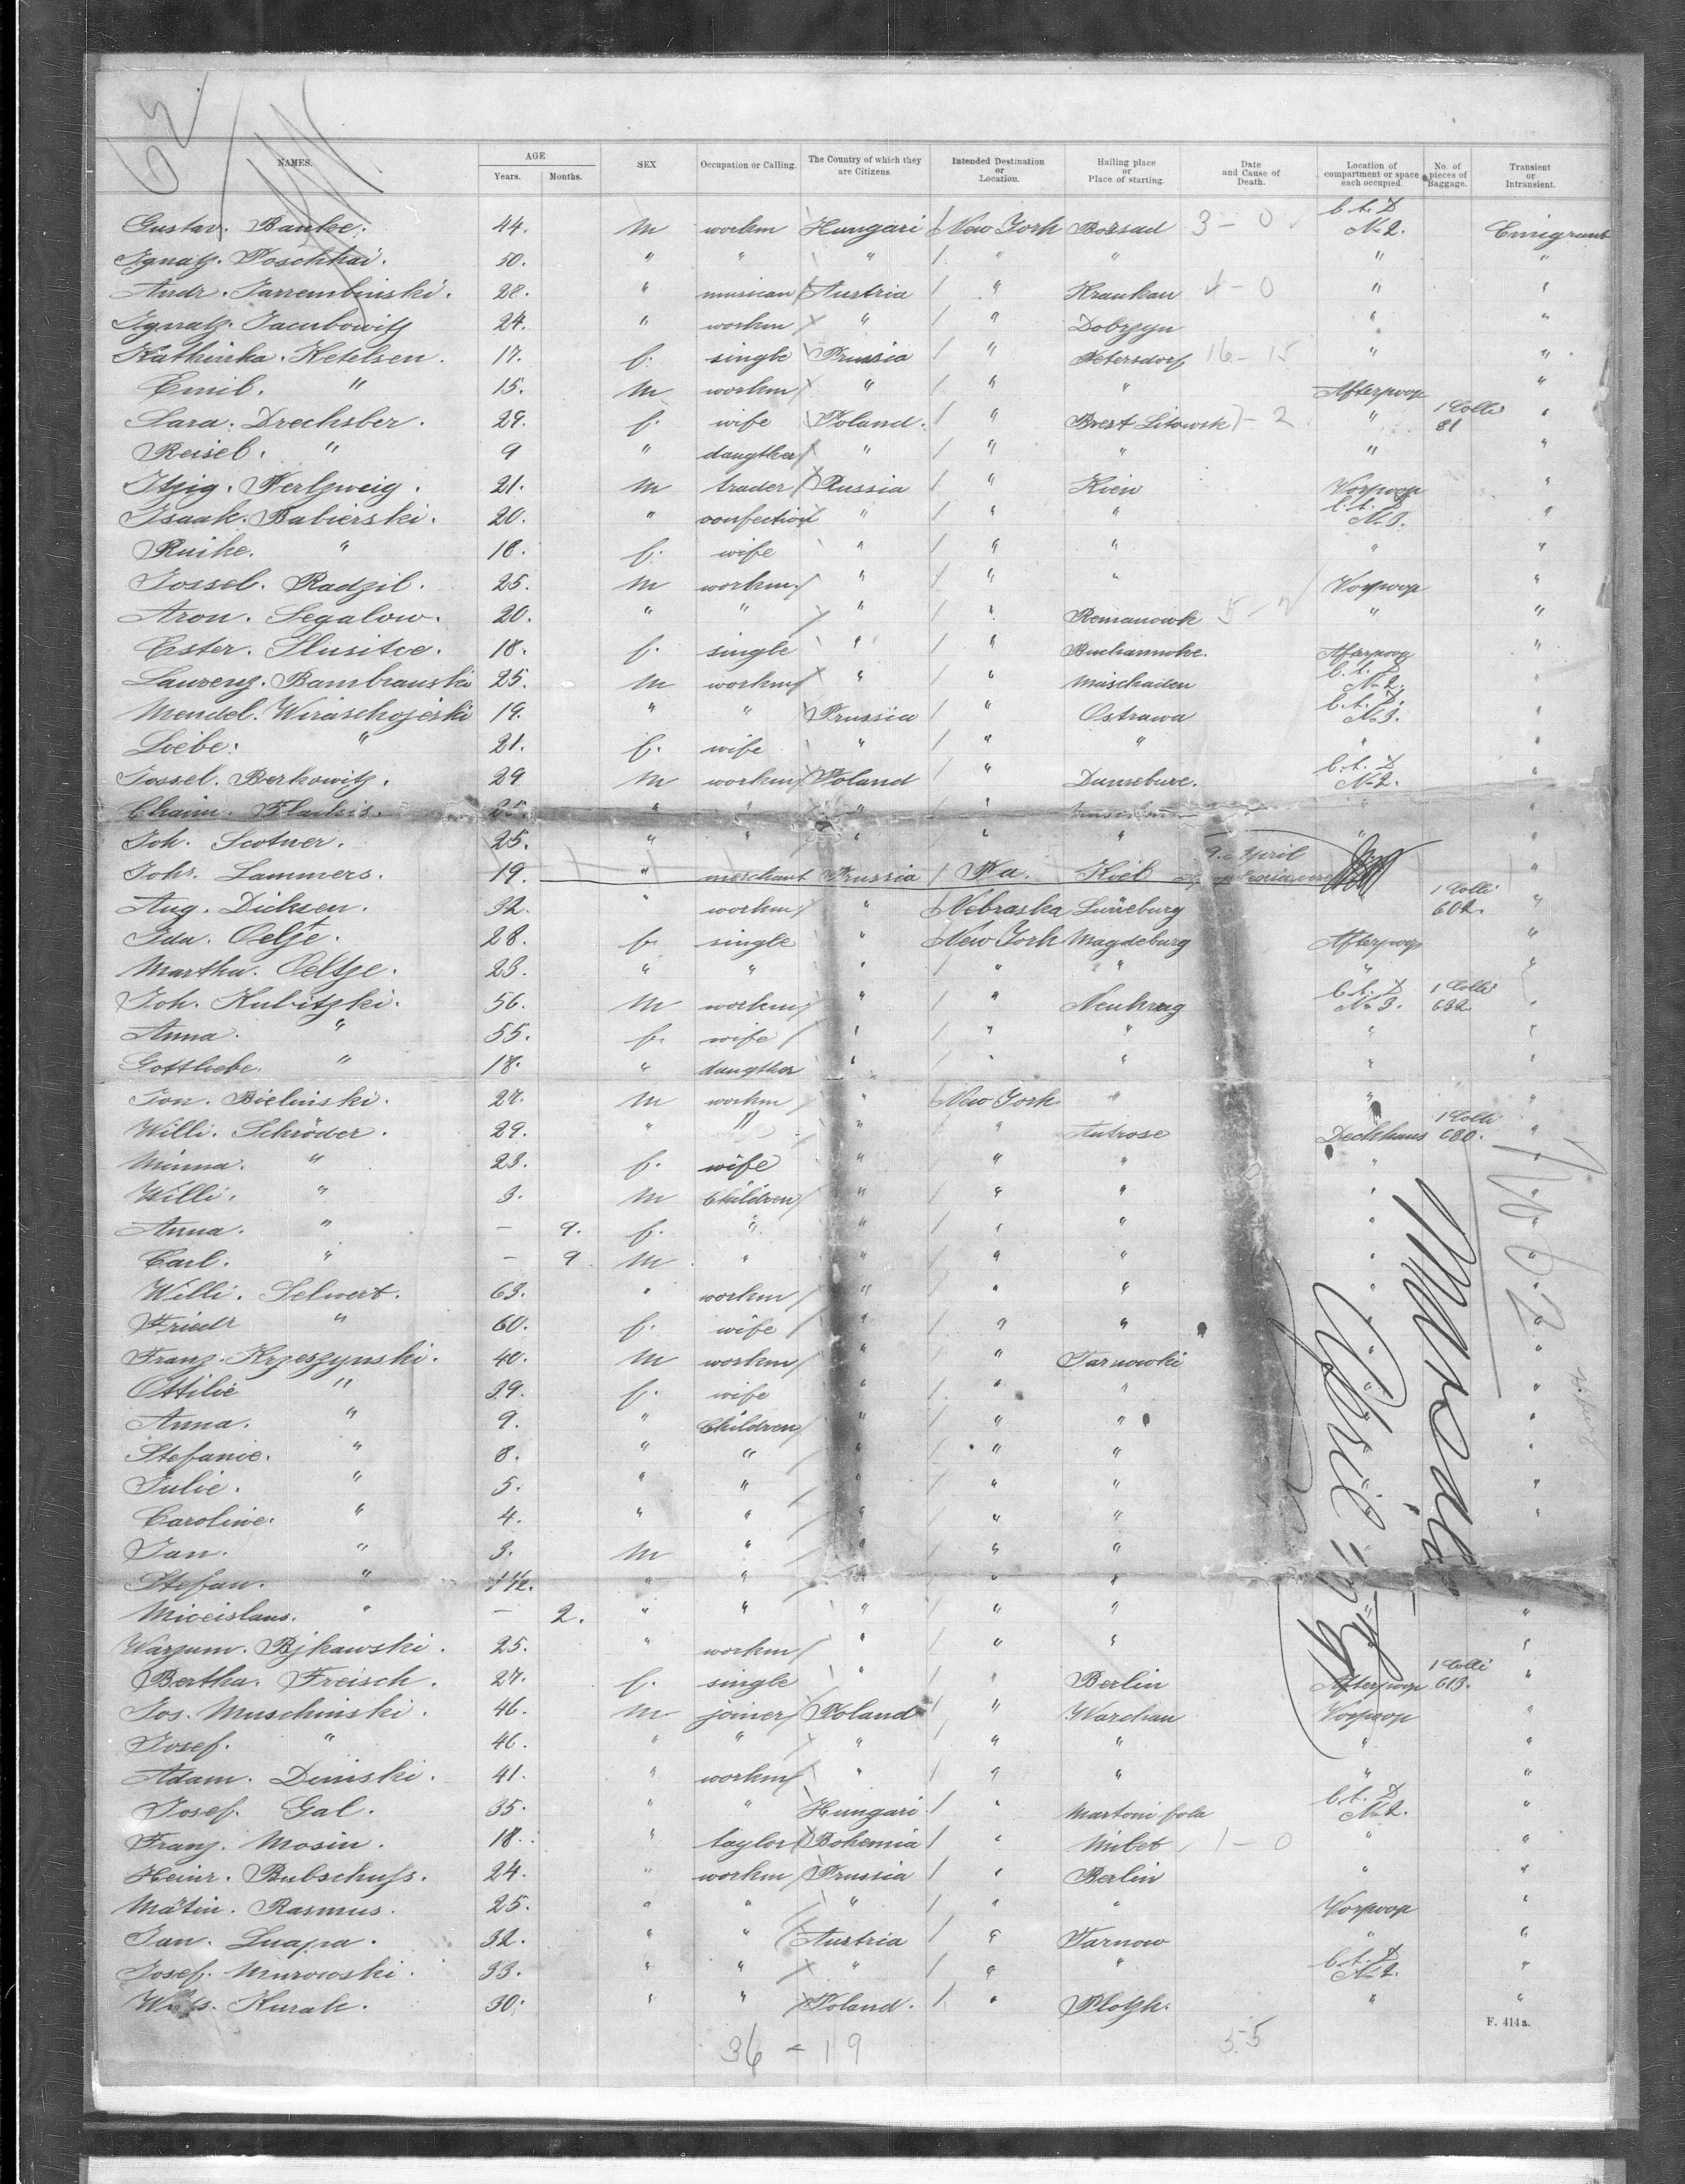 62
NAMES. AGE Years. Months. SEX Occupation or Calling. The Country of which they are Citizens. Intended Destination or Location. Hailing place or Place of starting. Date and Cause of Death. Location of compartment or space each occupied. No. of pieces of Baggage. Transient or Intransient.
Gustav. Banke. 44. m workm Hungari New York Borsad 3 - 0 C.t. D No 2. Emigrant
Ignatz. Poschkai. 50. " " " " " " "
Andr. Jarrembinski. 28. " musican Austria " Kraukau 4 - 0 " "
Ignatz. Jacubowitz 24. " workm " " Dobrzyn " "
Kathinka. Ketelsen. 17. f. single Prussia " Petersdorf 16 - 15 " "
Emil. " 15. m workm " " " Afterpoop "
Sara. Drechsler. 29. f. wife Poland. " Brest Litowsk - 2 " 1 Colli 81 "
Reisel. " 9 " daugther " " " " "
Itzig. Perlzweig. 21. m trader Russia " Kiew Vorpoop "
Isaak. Babierski. 20. " confection " " " C.t. D No 3. "
Ruike. " 18. f. wife " " " " "
Jossel. Radzil. 25. m workm " " " Vorpoop "
Aron. Segalow. 20. " " " " Remanowk 5 - " "
Ester. Slusitce. 18. f. single " " Buchannoke. Afterpoop "
Laurenz. Bambrauski 25. m workm " " Maischaiden C.t. D No 2. "
Mendel. Wiraschojeski 19. " " Prussia " Ostrawa C.t. D. No 3. "
Liebe. " 21. f. wife " " " " "
Jossel. Berkowitz. 29 m workm Poland " Dunebure. C.t. D No 2. "
Chaim. Flackis. 25. " " " " " "
Joh. Scotner. 25. " " " " " " "
Johs. Lammers. 19. " merchant Prussia Pa. Kiel 9. April "
Aug. Dicksen. 32. " workm " Nebraska Lüneburg 1 Colli 602. "
Ida. Oeltze. 28. f. single " New York Magdeburg Afterpoop "
Martha. Oeltze. 23. " " " " " " "
Joh. Kubitzki. 56. m workm " " Neukrug C.t. D No 3. 1 Colli 632 "
Anna. " 55. f. wife " " " " "
Gottliebe. " 18. " daugther " " " " "
Jon. Bielinski. 27. m workm " New York " " "
Willi. Schröder. 29. " " " " Autrose Deckhaus 1 Colli 680. "
Minna. " 23. f. wife " " " " "
Willi. " 3. m Children " " " " "
Anna. " - 9. f. " " " " " "
Carl. " - 9 m " " " " " "
Willi. Selwert. 63. " workm " " " " "
Friedr " 60. f. wife " " " "
Franz. Krzeszynski. 40. m workm " " Tarnowki "
Ottilie " 39. f. wife " " " "
Anna. " 9. " Children " " " "
Stefanie. " 8. " " " " " "
Julie. " 5. " " " " " "
Caroline. " 4. " " " " " "
Jan. " 3. m " " " "
Stefan. " 1 1/2. " " " " "
Miceislaus. " - 2. " " " " " "
Warzum. Bjkawski. 25. " workm " " " "
Bertha. Freisch. 27. f. single " " Berlin Afterpoop 1 Colli 613. "
Jos. Muschinski. 46. m joiner Poland " Warchau Vorpoop "
Josef. " 46. " " " " " " "
Adam. Dinski. 41. " workm " " " " "
Josef. Gal. 35. " " Hungari " Martoni fola C.t. D No 2. "
Franz. Mosin. 18. " taylor Bohemia " Nibet 1 - 0 " "
Heinr. Bubschuss. 24. " workm Prussia " Berlin " "
Mätin. Rasmus. 25. " " " " " Vorpoop "
Jan. Luapa. 32. " " Austria " Tarnow " "
Josef. Murowski. 33. " " " " " C.t. D No 2. "
Kurak. 30. " " Poland. " Plotzk. " "
F. 414a.
36 - 19 55